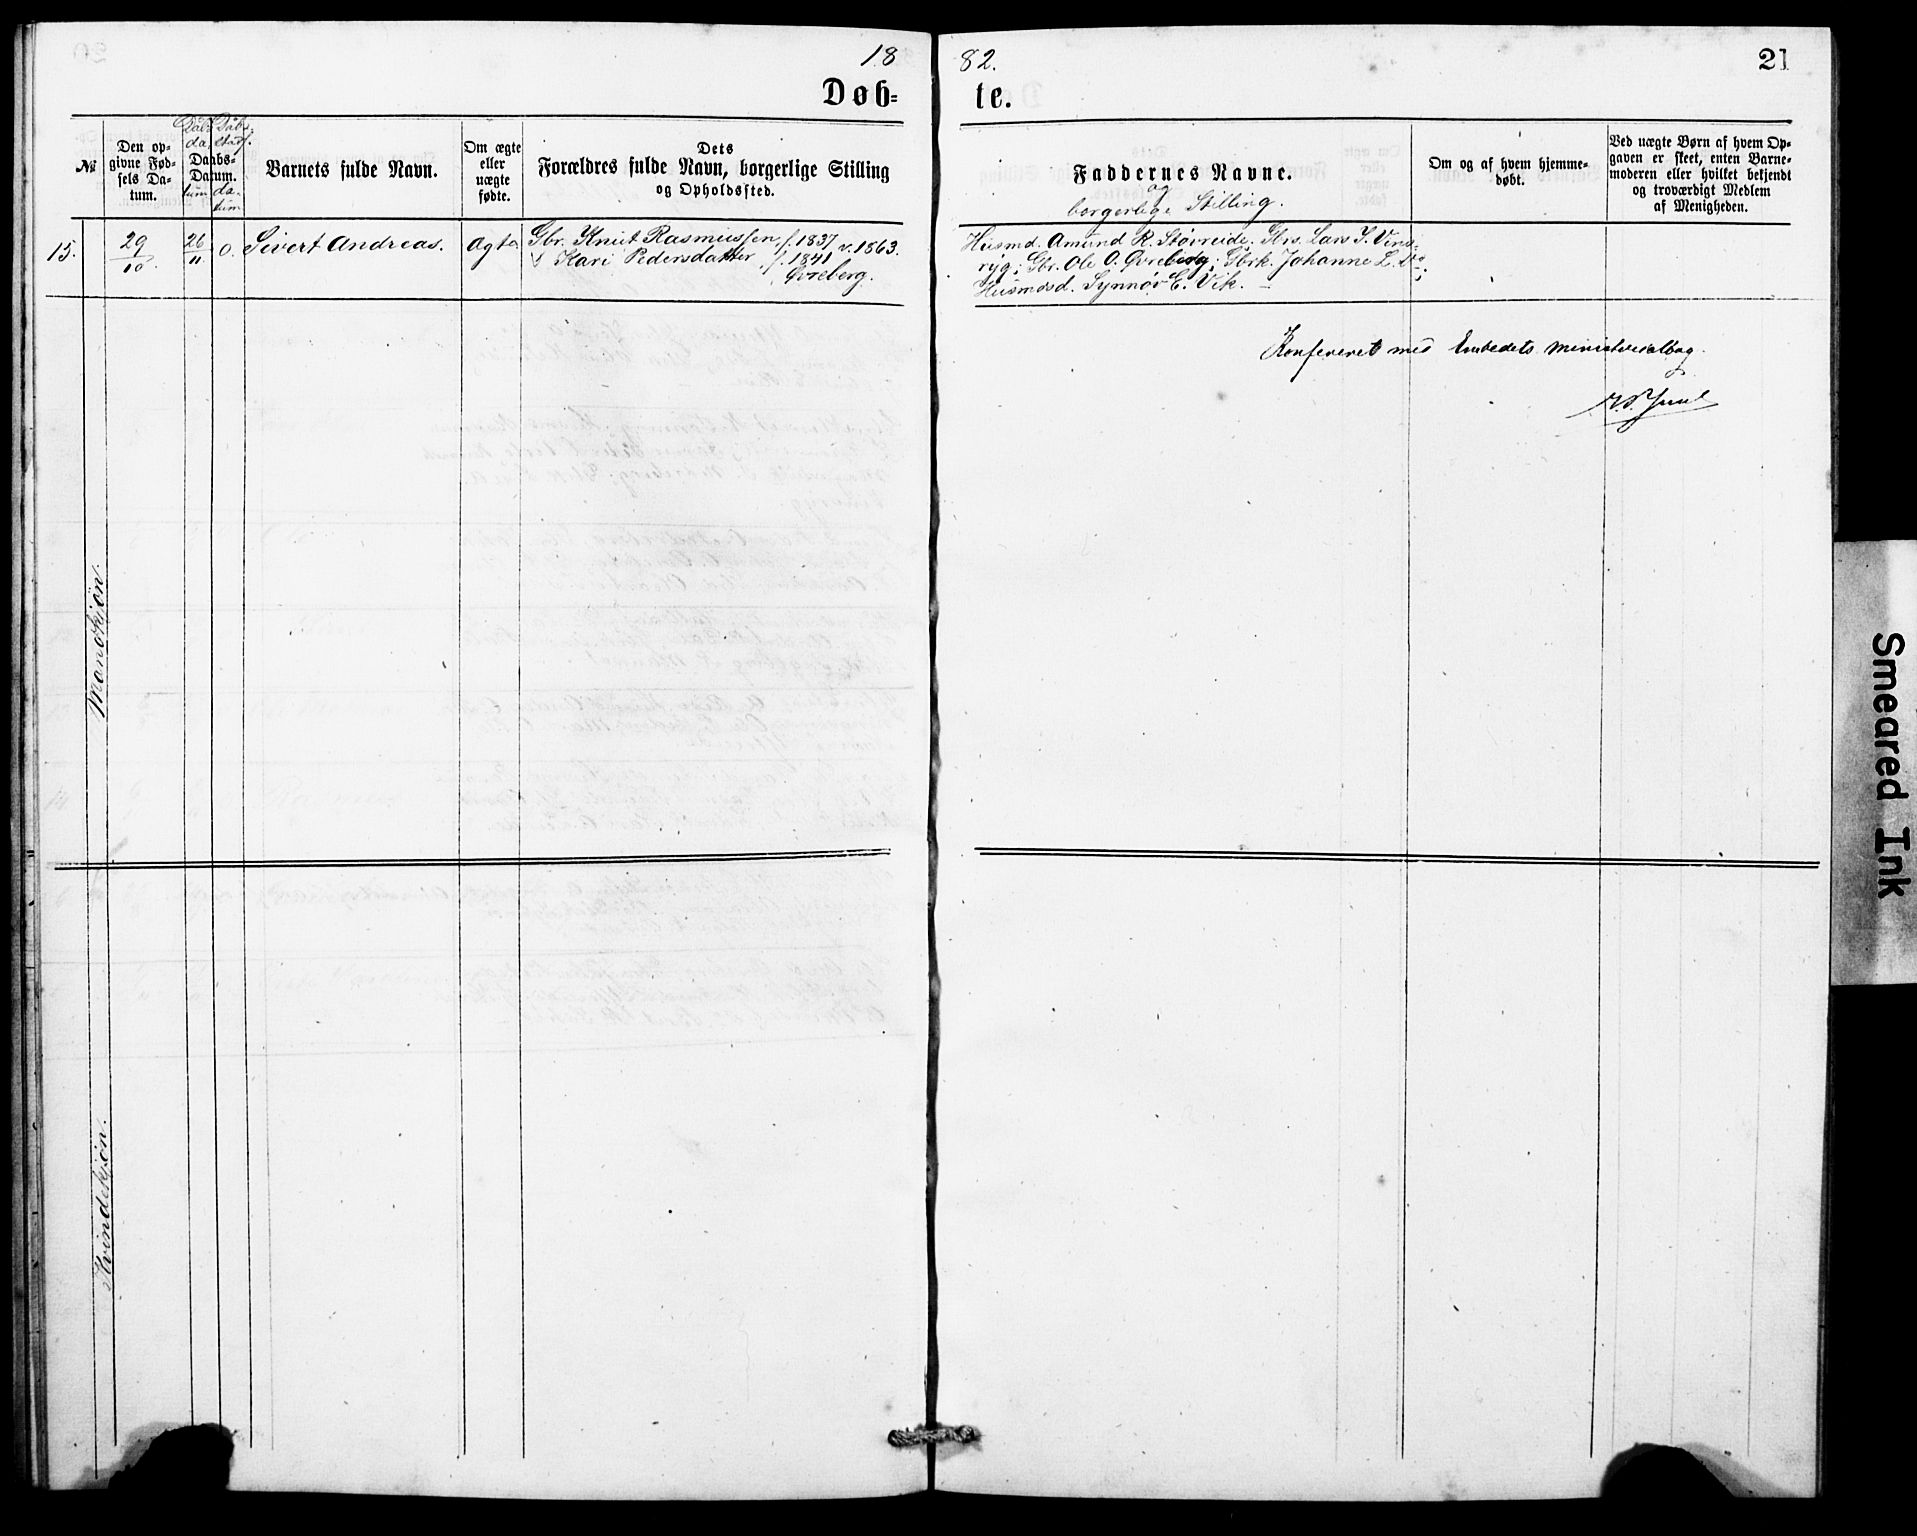 1882.
21
Døb-te.
№
Den op-
givne Fød-
sels Da-
tum.
Daabs-
Datum.
Barnets fulde Navn.
Om ægte
eller
uægte
fødte.
Dets
Forældres fulde Navn, borgerlige Stilling
og Opholdssted.
Faddernes Navne.
og
borgerlige Stilling.
Om og af hvem hjemme-
døbt.
Ved uægte Børn af hvem Op-
gaven er skeet, enten Barne-
moderen eller hvilket bekjendt
og troværdigt Medlem
af Menigheden.
15. 29/10. 26/11 0. Sivert Andreas. Ægte
Gbr. Knut Rasmussen, f. 1837 v. 1863.
Kari Pedersdatter f. 1841
Øvreberg.
Husmd. Amund R. Støvreide. Gbrs. Lars I. Vens-
ryg; Gbr. Ole O. Øvreberg; Gbrk. Johanne L. do;
Husmdsd. Synnøv E. Vik.
Konfereret med Embedets Ministerialbog.
Mandkjøn.
Kvindekjøn.
Smeared Ink